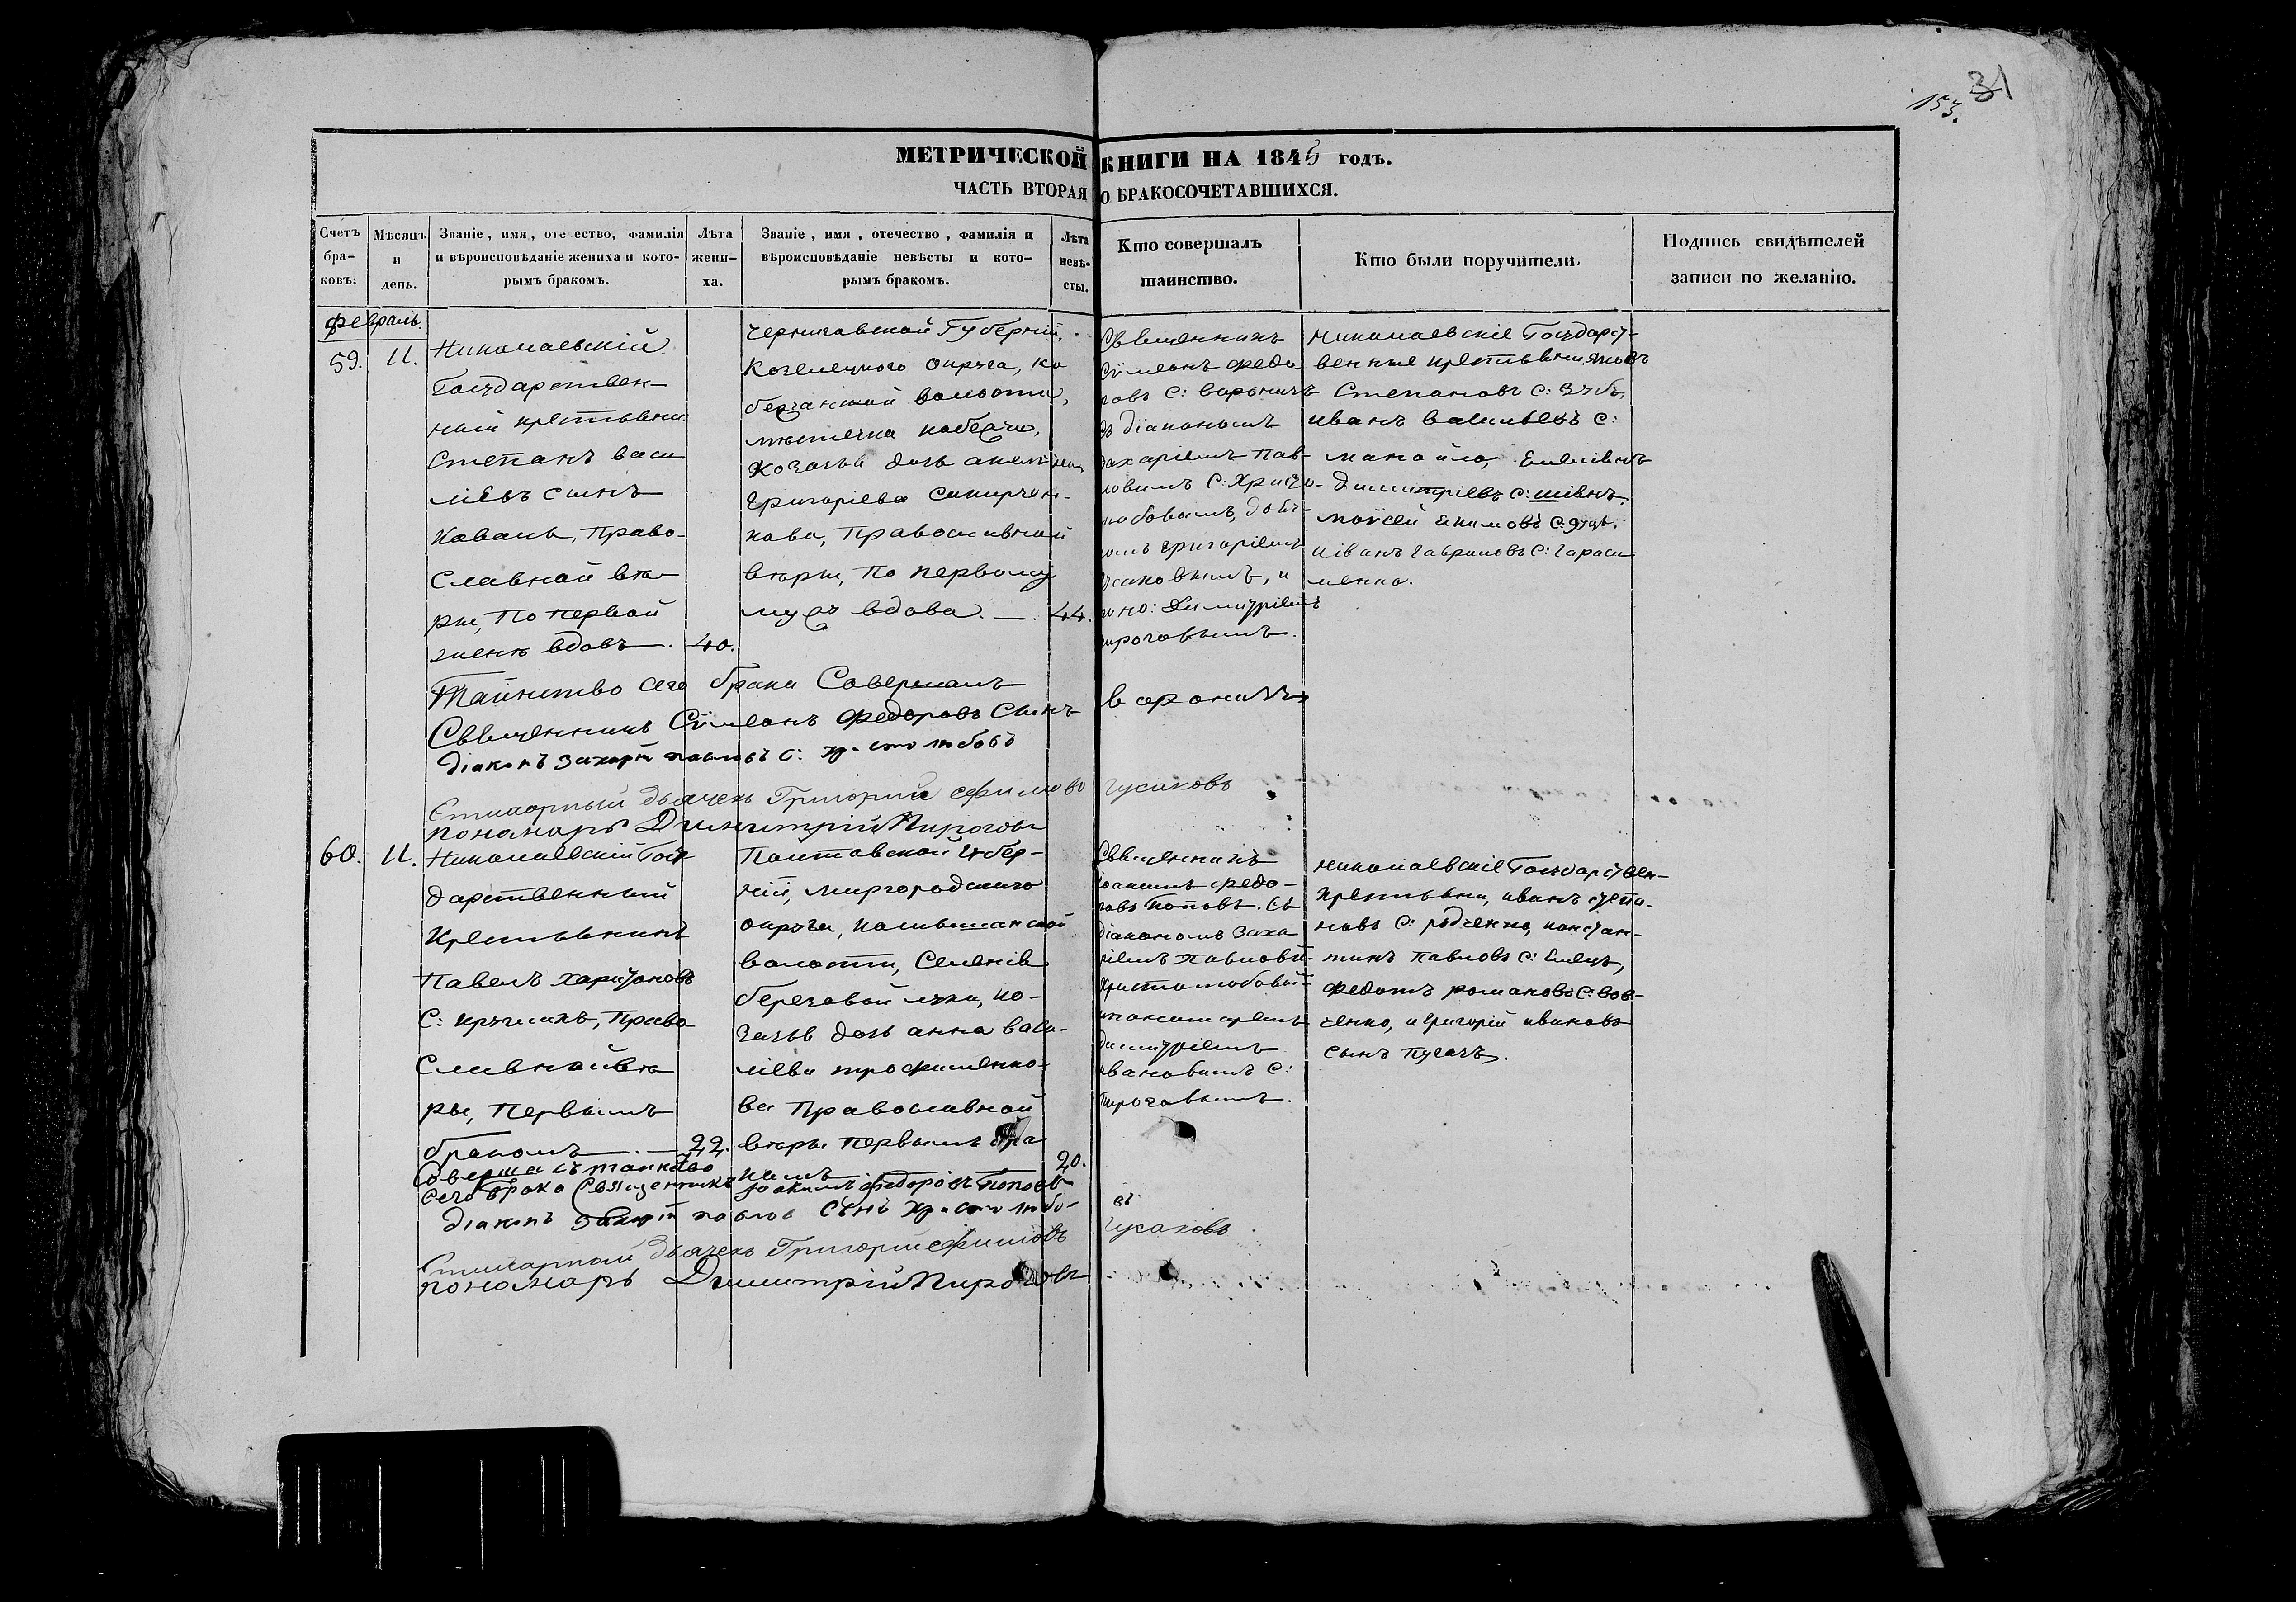 153. 31
МЕТРИЧЕСКОЙ КНИГИ НА 1845 годъ.
ЧАСТЬ ВТОРАЯ О БРАКОСОЧЕТАВШИХСЯ.
Счетъ бра-ковъ.
Мѣсяцъ и день.
Званіе, имя, оте ество, фамилія и вѣроисповѣданіе жениха и кото-рымъ бракомъ.
Лѣта жени-ха.
Званіе, имя, отечество, фамилія и вѣроисповѣданіе невѣсты и кото-рымъ бракомъ.
Лѣта невѣ-сты.
Кто совершалъ таинство.
Кто были поручители.
Подпись свидѣтелей записи по желанію.
февраль.
59. 11.
Николаевскій
Государствен-
ный крестьяни
Степанъ Васи
ліевъ сынъ
Коваль, Право-
славной вѣ-
ры, по первой
женѣ вдовъ. 40.
Черниговской Губерніи,
Козелецкого округа, ко
бызчанской волости,
мѣстечка кобызчи,
козачья дочь
Григоріева
кова, Православной
вѣры, по первому
мужѣ вдова. — 44.
Священникъ
Сѵмеонъ Федо
ровъ С: Вороничъ
съ діакономъ
Захаріемъ Пав-
ловымъ С: Христо-
любовымъ, дьяч-
комъ Григоріемъ
Гусаковымъ, и
поно: Димитріемъ
Пироговымъ.
Николаевскіе Государст-
венные крестьяни Яковъ
Степановъ С: Зубъ,
Иванъ Васильевъ С:
Манойло, Емеліянъ
Димитріевъ С: Шіянъ,
Моѵсей Екимовъ С:
Иванъ Гавриловъ С: Гараси
менко.
Таинство сего брака Совершалъ
Священникъ Сѵмеонъ Федоровъ Сынъ Вороничъ
Діаконъ Захарій павловъ С: христолюбовъ
Стихарный Дьячекъ Григорий Ефимовъ Гусаковъ
пономарь Димитрій Пироговъ
60. 11.
Николаевскій Госу
дарственный
Крестьянинъ
Павелъ Харитоновъ
С: кругликъ, Право-
Славной вѣ
ры, первымъ
бракомъ. — 22.
Полтавской Губер-
ніи, миргородскаго
округа, комышанской
волости, Селенія
березовой луки, ко-
зачья дочь Анна Васи-
ліева трофименко-
ва Православной
вѣры первымъ бра
комъ 20.
Священникъ
Іоакимъ Федо-
ровъ Поповъ. Съ
діакономъ Заха
ріемъ Павловы
Христолюбовым
и пономаремъ
Димитріемъ
Ивановымъ С:
Пироговымъ.
Николаевскіе Государствен-
крестьяни, Иванъ Степа-
новъ С: родченко, констан-
тинъ Павловъ С: Емецъ,
Федотъ романовъ С: Вов-
ченко, и Григорій Ивановъ
сынъ Пугачъ.
Совершалъ таинство
сего брака Священникъ Іоакимъ Федоровъ Поповъ
Діаконъ Захарій павлов Сынъ Христолюбо-въ
Стихарный Дьячекъ Григорий Ефимовъ Гусаковъ
пономарь Димитрій Пироговъ